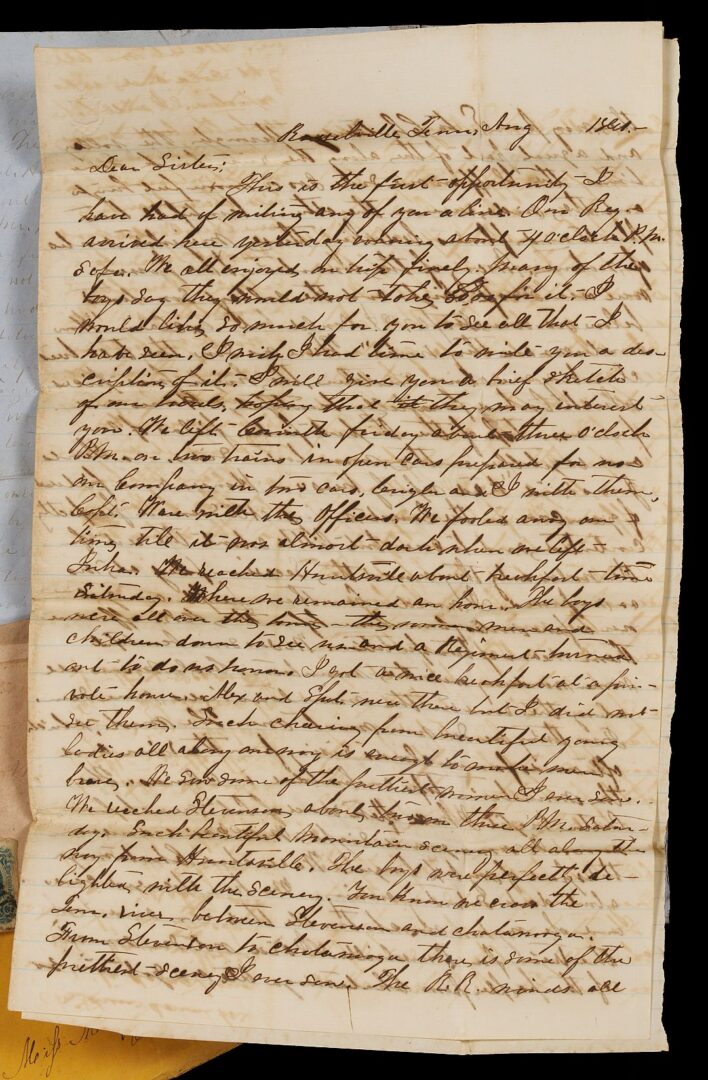 Tenn, Aug 1861.-
Dear Sister;
This is the first opportunity I
have had of writing any of you a line. Our Reg.
arrived here yesterday evening about 4 oclock P.M.
safe. We all enjoyed our trip finely, many of the
boys say they would not take for it. I
would like so much for you to see all that I
have seen, I wish I had time to write you a des-
cription of it. I will give you a brief sketch
of our travels, hoping that it they may interest
you. We left Corinth friday about three o'clock
P.M. on two trains in open cars prepared for us
our Company in two cars, and I with them,
Capt. Ware with the officers. We fooled away our
time till it was almost dark when we left
Iuka. We reached Huntsville about breakfast time
Saturday. Where we remained an hour. The boys
were all over the town, the women men and
children down to see us and a Regiment turned
out to do us honor. I got a nice breakfast at a pri-
vate house. Alex and were there but I did not
see them. Such cheering from beautiful young
ladies all along our way is enough to make men
brave. We saw some of the prettiest women I ever saw.
We reached Stevenson about two or three P.M. Satur-
day. Such beautiful mountain scenery all along the
way from Huntsville. The boys were perfectly de-
lighted with the scenery. You know we cross the
Tenn. river between Stevenson and chatanooga.
From Stevenson to chatanooga there is some of the
prettiest scenery I ever saw. The R.R. winds all